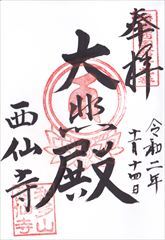 奉拝
令和二年
十一月十四日
大照殿
西仙寺